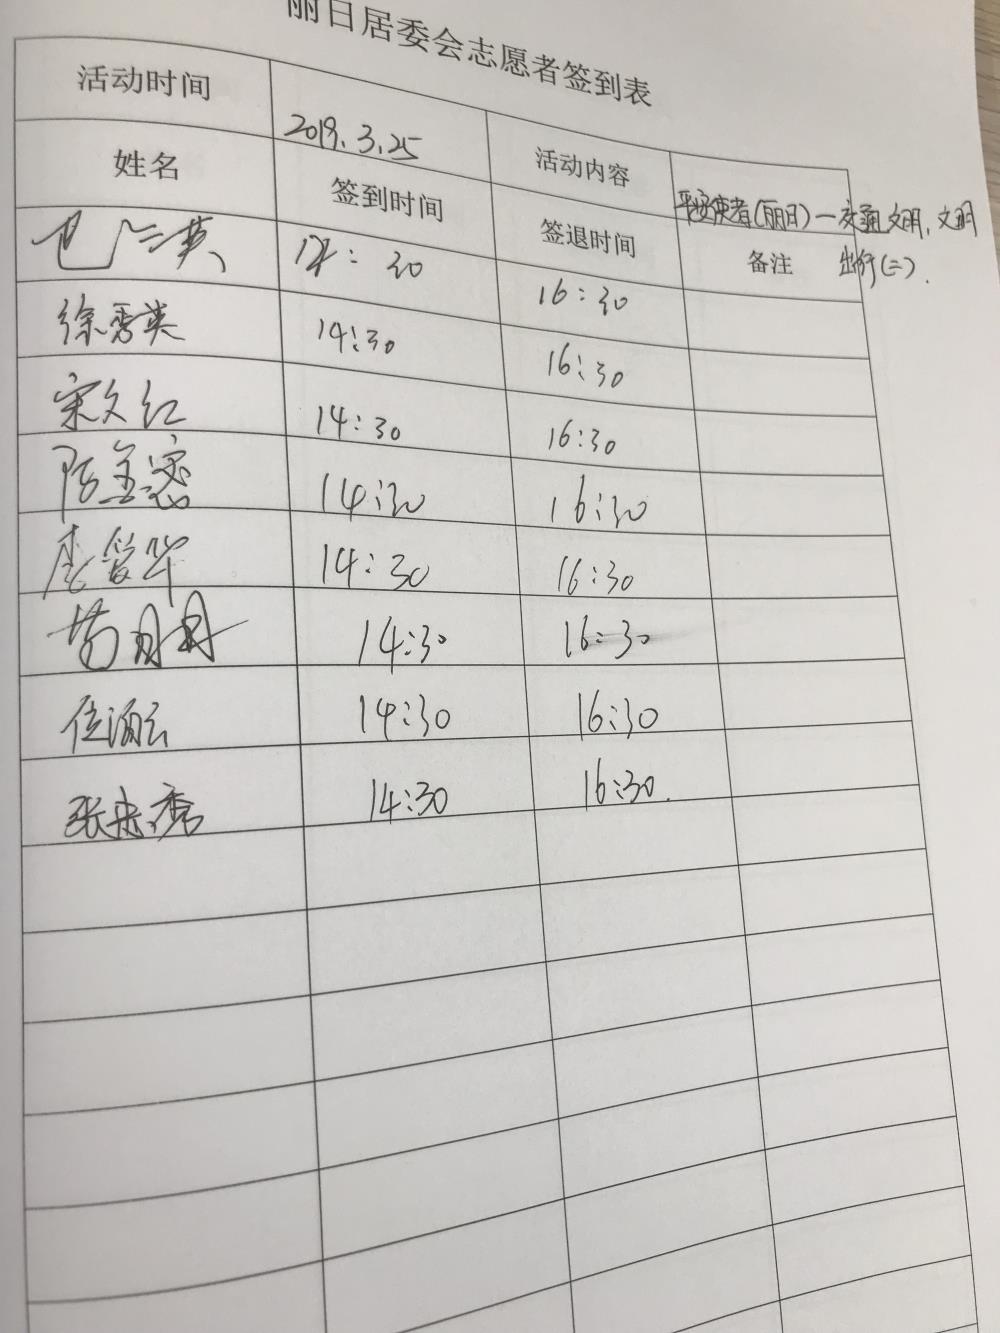 丽日居委会志愿者签到表
活动时间 2019.3.25 活动内容 平安使者(丽日)一交通文明,文明出行(二).
姓名 签到时间 签退时间 备注
14:30 16:30
徐秀英 14:30 16:30
宋文红 14:30 16:30
14:30 16:30
唐爱华 14:30 16:30
14:30 16:30
14:30 16:30
张忠秀 14:30 16:30.